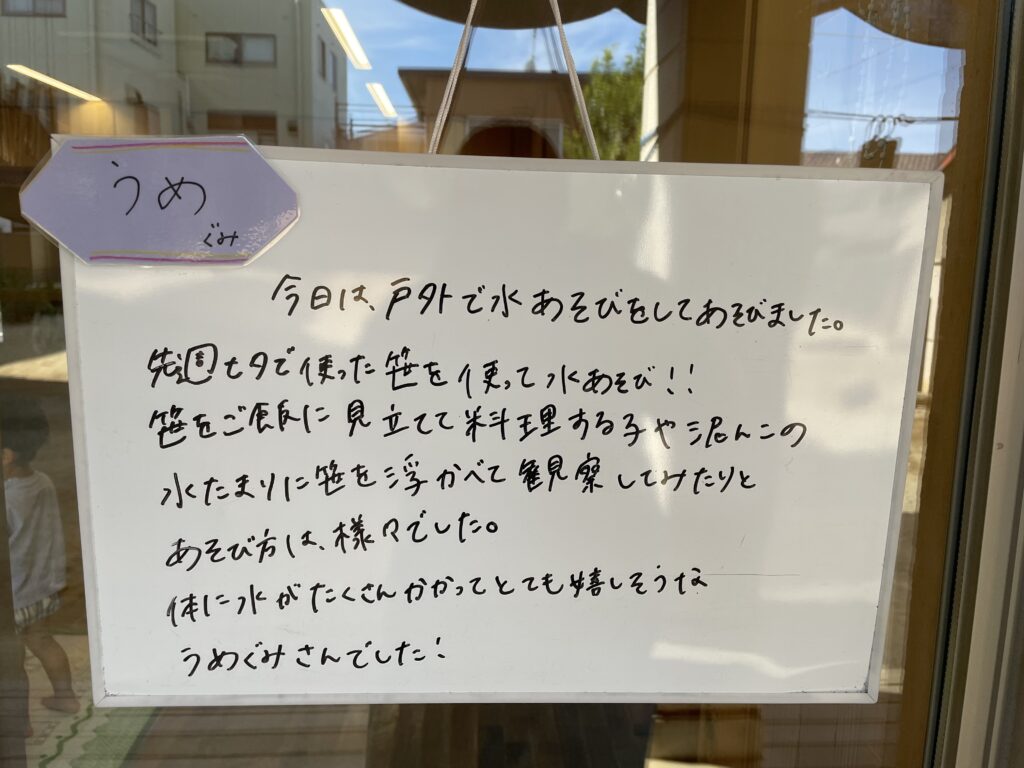 うめ
ぐみ
今日は、戸外で水あそびをしてあそびました。
先週七夕で使った笹を使って水あそび!!
笹をご飯に見立てて料理する子や泥んこの
水たまりに笹を浮かべて観察してみたりと
あそび方は、様々でした。
体に水がたくさんかかってとても嬉しそうな
うめぐみさんでした!